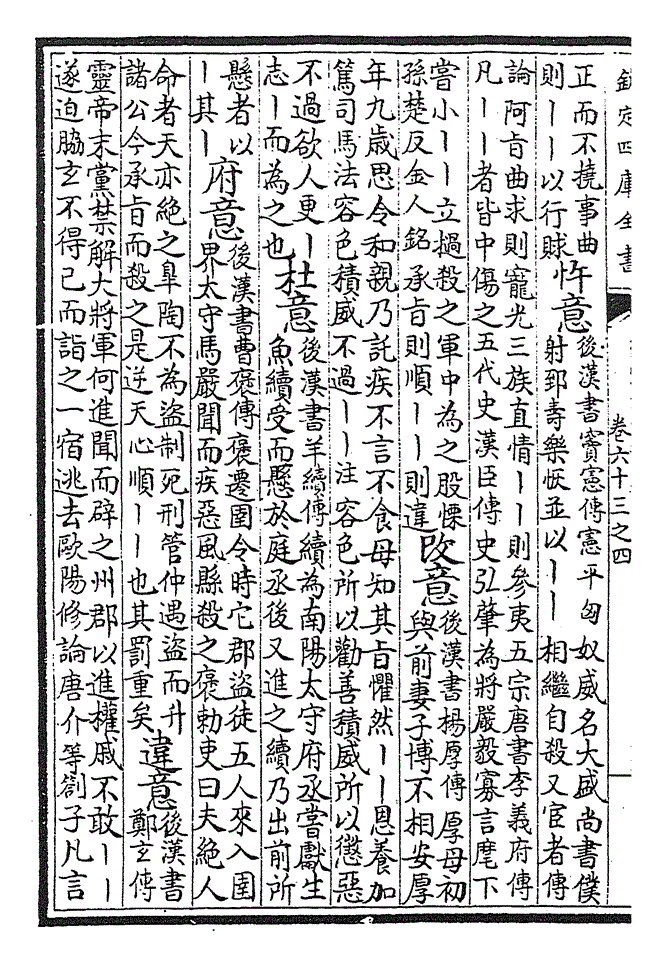 欽定四庫全書
卷六十三之四
正而不撓事曲
則丨丨以行賕
忤意
後漢書竇憲傳憲平匈奴威名大盛尚書僕
射郅壽樂恢並以丨丨相繼自殺又宦者傳
論阿旨曲求則寵光三族直情丨丨則參夷五宗唐書李義府傳
凡丨丨者皆中傷之五代史漢臣傳史弘肇為將嚴毅寡言麾下
嘗小丨丨立撾殺之軍中為之股慄
孫楚反金人銘承旨則順丨丨則違
改意
後漢書楊厚傳厚母初
與前妻子博不相安厚
年九歲思令和親乃託疾不言不食母知其旨懼然丨丨恩養加
篤司馬法容色積威不過丨丨注容色所以勸善積威所以懲惡
不過欲人更丨
志丨而為之也
杜意
後漢書羊續傳續為南陽太守府丞嘗獻生
魚續受而懸於庭丞後又進之續乃出前所
懸者以
丨其丨
府意
後漢書曹褒傳褒遷圉令時它郡盜徒五人來入圉
界太守馬嚴聞而疾惡風縣殺之褒勅吏曰夫絕人
命者天亦絕之臯陶不為盜制死刑管仲遇盜而升
諸公今承旨而殺之是逆天心順丨丨也其罰重矣
違意
後漢書
鄭玄傳
靈帝末黨禁解大將軍何進聞而辟之州郡以進權戚不敢丨丨
遂迫脅玄不得已而詣之一宿逃去歐陽修論唐介等劄子凡言